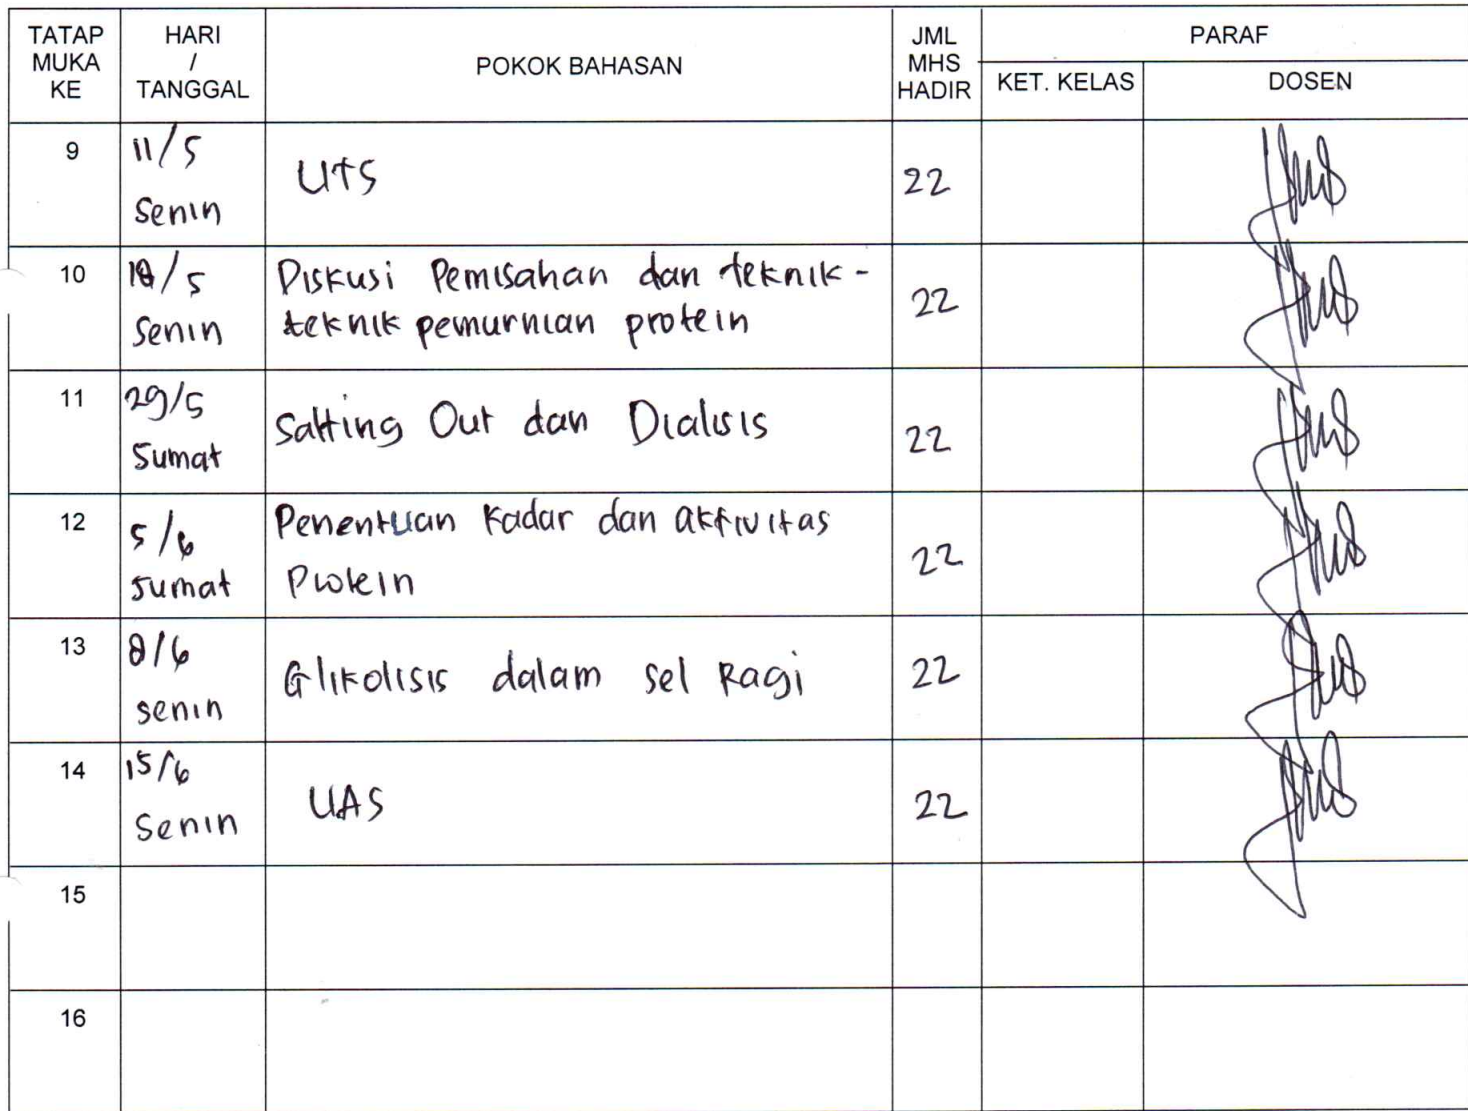 TATAP MUKA KE | HARI / TANGGAL | POKOK BAHASAN | JML MHS HADIR | PARAF
KET. KELAS | DOSEN
9 | 11/5 Senin | UTS | 22
10 | 18/5 Senin | Diskusi Pemisahan dan teknik-
teknik pemurnian protein | 22
11 | 29/5 Jumat | Salting Out dan Dialisis | 22
12 | 5/6 Jumat | Penentuan Kadar dan aktivitas
Protein | 22
13 | 8/6 senin | Glikolisis dalam sel Ragi | 22
14 | 15/6 Senin | UAS | 22
15
16